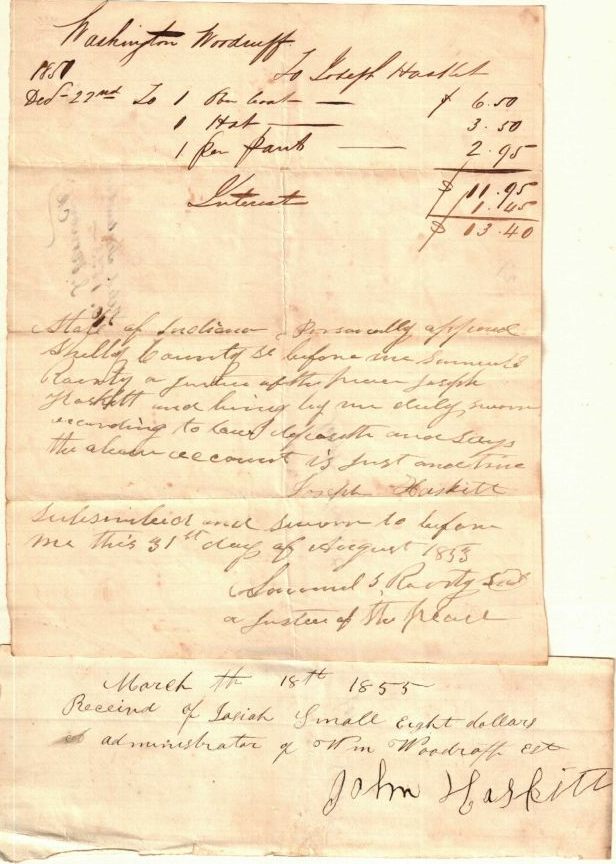 Washington Woodruff
1850 To Joseph Haskit
Dec 22nd To 1 Over Coat — $ 6.50
1 Hat — 3.50
1 per pants — 2.95
$ 11.95
Interest 1.45
$ 13.40
State of Indiana Personally appeared
Shelby County SS before me Samuel S
a Justice of the peace Joseph
Haskitt and being by me duly sworn
according to law deposeth and says
the above account is just and true
Joseph Haskitt
Subscribed and sworn to before
me this 31st day of August 1853
Samuel S Seal
a Justice of the peace
March th 18th 1855
Received of Josiah Small eight dollars
administrator of Wm Woodroff est
John Haskitt